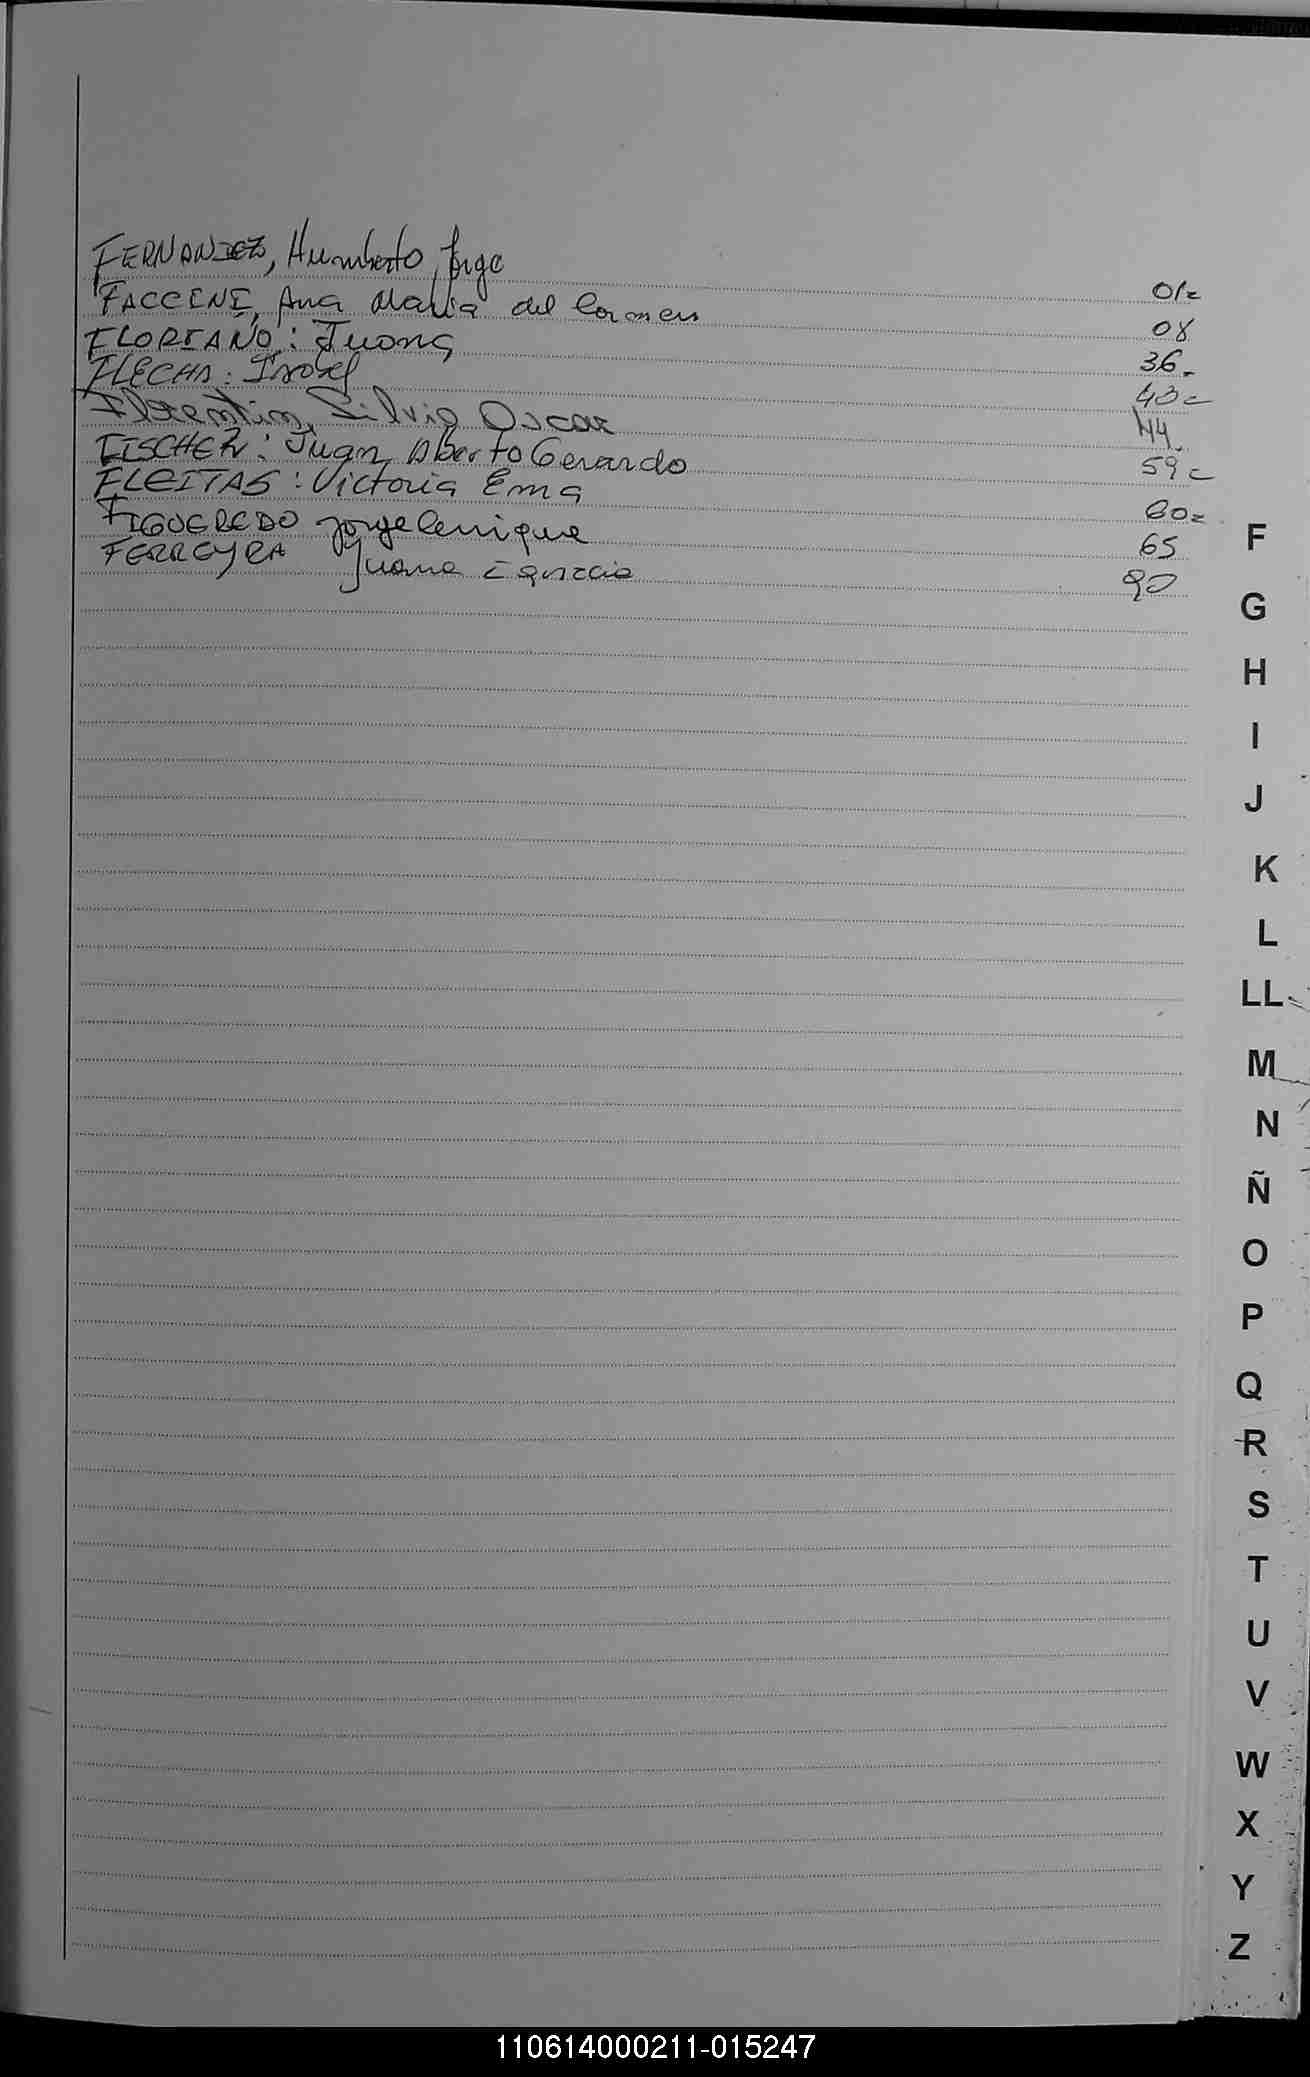 FERNANDEZ, Humberto Jorge 01c
FACCENE, Ana Maria del Carmen 08
FLOREANO: Juana 36
FLECHA: Isabel 40c
Florentin Silvio Oscar 44
FISCHER: Juan Alberto Gerardo 59c
FLEITAS: Victoria Ema 60c
FIGUEREDO Jorge Enrique 65
FERREYRA Juana 90
F
G
H
I
J
K
L
LL
M
N
Ñ
O
P
Q
R
S
T
U
V
W
X
Y
Z
110614000211-015247